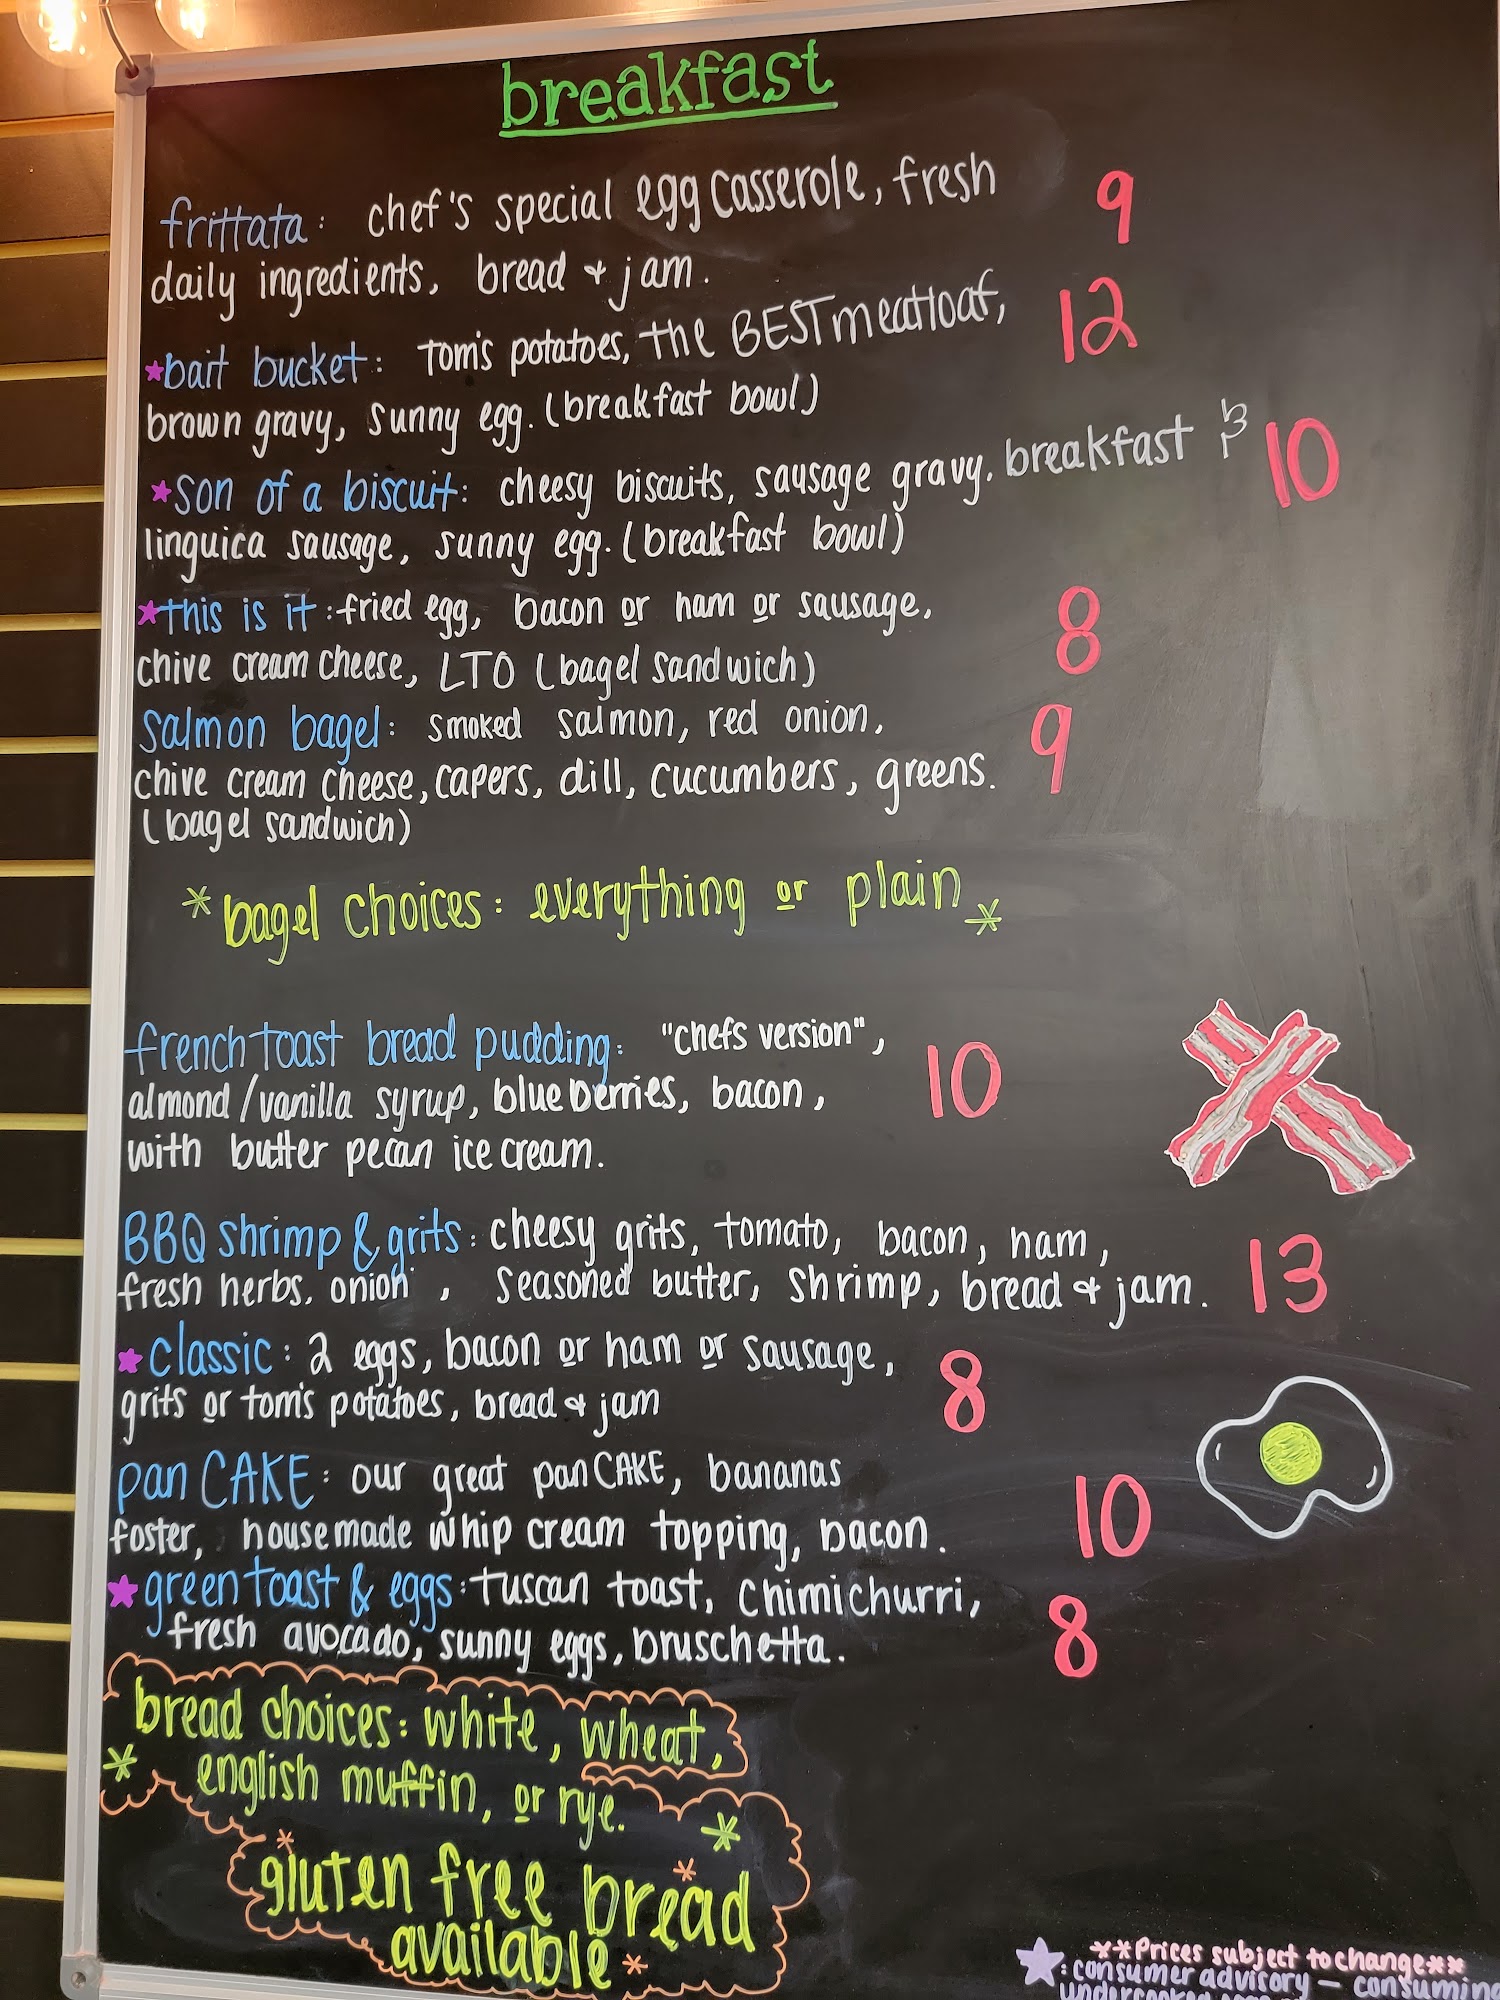 breakfast
frittata: chef's special egg casserole, fresh 9
daily ingredients, bread & jam.
★bait bucket: tom's potatoes, the BEST meatloaf, 12
brown gravy, sunny egg. (breakfast bowl)
★son of a biscuit: cheesy biscuits, sausage gravy, breakfast 10
linguica sausage, sunny egg. (breakfast bowl)
★this is it: fried egg, bacon or ham or sausage, 8
chive cream cheese, LTO (bagel sandwich)
salmon bagel: smoked salmon, red onion, 9
chive cream cheese, capers, dill, cucumbers, greens.
(bagel sandwich)
*bagel choices: everything or plain*
french toast bread pudding: "chefs version", 10
almond/vanilla syrup, blueberries, bacon,
with butter pecan ice cream.
BBQ shrimp & grits: cheesy grits, tomato, bacon, ham, 13
fresh herbs, onion, seasoned butter, shrimp, bread & jam.
★classic: 2 eggs, bacon or ham or sausage, 8
grits or tom's potatoes, bread & jam
pan CAKE: our great panCAKE, bananas 10
foster, housemade whip cream topping, bacon.
★green toast & eggs: tuscan toast, chimichurri, 8
fresh avocado, sunny eggs, bruschetta.
bread choices: white, wheat,
* english muffin, or rye. *
*gluten free bread*
available*
**Prices subject to change**
★: consumer advisory – consuming